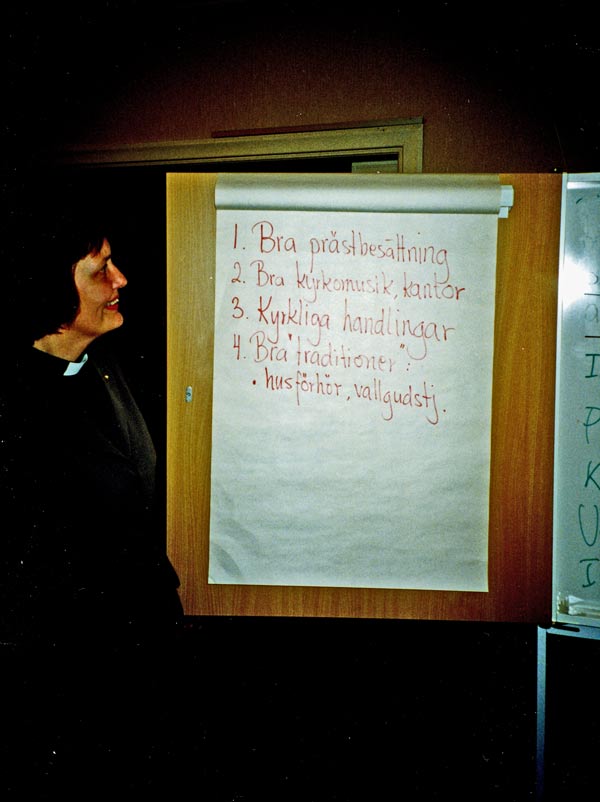 1. Bra prästbesättning
2. Bra kyrkomusik, kantor
3. Kyrkliga handlingar
4. Bra "traditioner":
• husförhör, vallgudstj.
I
P
K
U
I